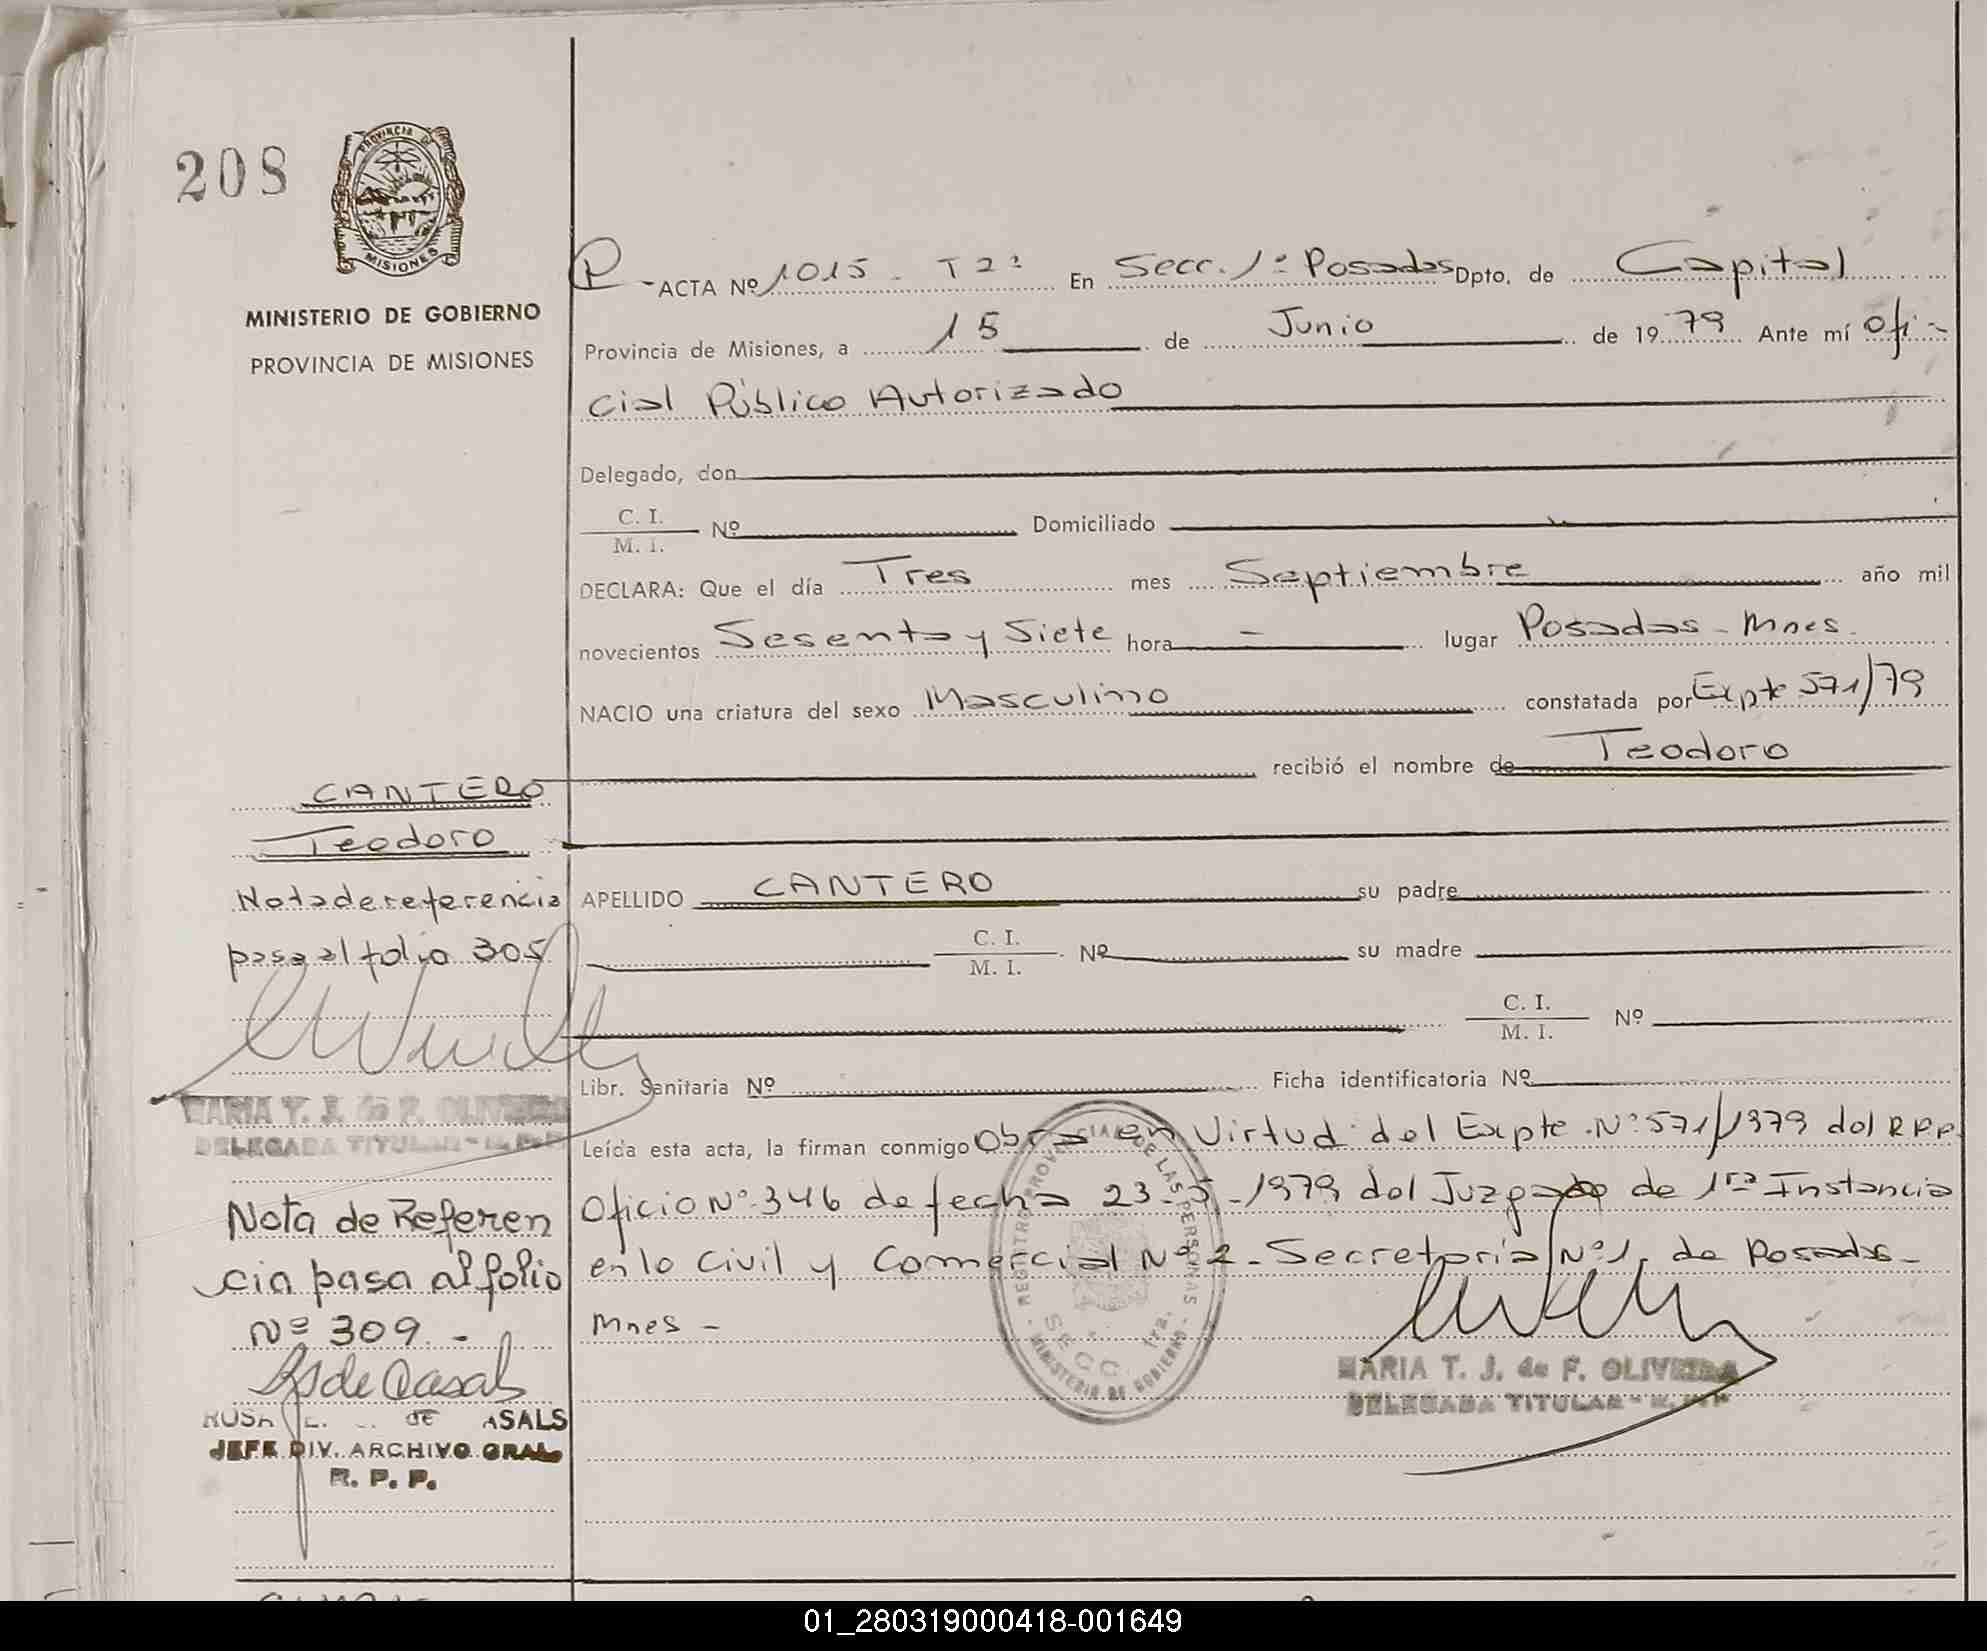 208
PROVINCIA DE
MISIONES
MINISTERIO DE GOBIERNO
PROVINCIA DE MISIONES
P - ACTA Nº 1015 - T 2º En Secc. 1ª Posadas Dpto. de Capital
Provincia de Misiones, a 15 de Junio de 1979 Ante mí Ofi-
cial Público Autorizado
Delegado, don
C. I.
M. I. Nº Domiciliado
DECLARA: Que el día Tres mes Septiembre año mil
novecientos Sesenta y Siete hora - lugar Posadas - Mnes.
NACIO una criatura del sexo Masculino constatada por Expte 571/79
recibió el nombre de Teodoro
APELLIDO CANTERO su padre
C. I.
M. I. Nº su madre
C. I.
M. I. Nº
Libr. Sanitaria Nº Ficha identificatoria Nº
Leída esta acta, la firman conmigo Obra en Virtud del Expte. Nº 571/1979 del R P P.
Oficio Nº 346 de fecha 23-5-1979 del Juzgado de 1ra Instancia
en lo Civil y Comercial Nº 2 - Secretaria Nº 1, de Posadas -
Mnes -
REGISTRO PROVINCIAL DE LAS PERSONAS
SECC. 1ra.
- MINISTERIO DE GOBIERNO -
MARIA T. J. de F. OLIVEIRA
DELEGADA TITULAR -
CANTERO
Teodoro
Nota de referencia
pasa al folio 305
MARIA T. J. de F. OLIVEIRA
DELEGADA TITULAR -
Nota de Referen
cia pasa al folio
Nº 309. -
de Casals
ROSA DE CASALS
JEFE DIV. ARCHIVO GRAL.
R. P. P.
01_280319000418-001649